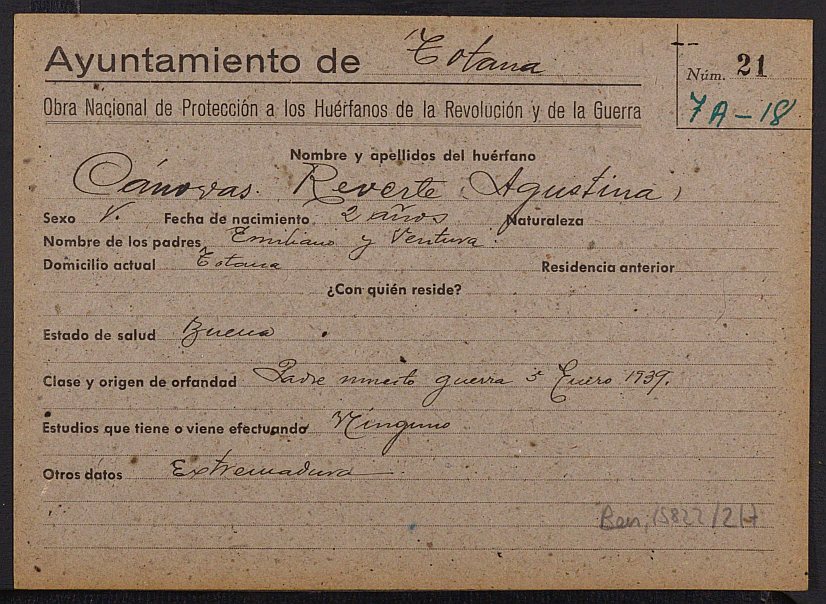 Ayuntamiento de Totana
Núm. 21
7A-18
Obra Nacional de Protección a los Huérfanos de la Revolución y de la Guerra
Nombre y apellidos del huérfano
Cánovas Reverte (Agustina)
Sexo V. Fecha de nacimiento 2 años Naturaleza
Nombre de los padres Emiliano y Ventura.
Domicilio actual Totana Residencia anterior
¿Con quién reside?
Estado de salud Buena
Clase y origen de orfandad Padre muerto guerra 5 Enero 1939.
Estudios que tiene o viene efectuando Ninguno
Otros datos Extremadura
Ben, 15822/217